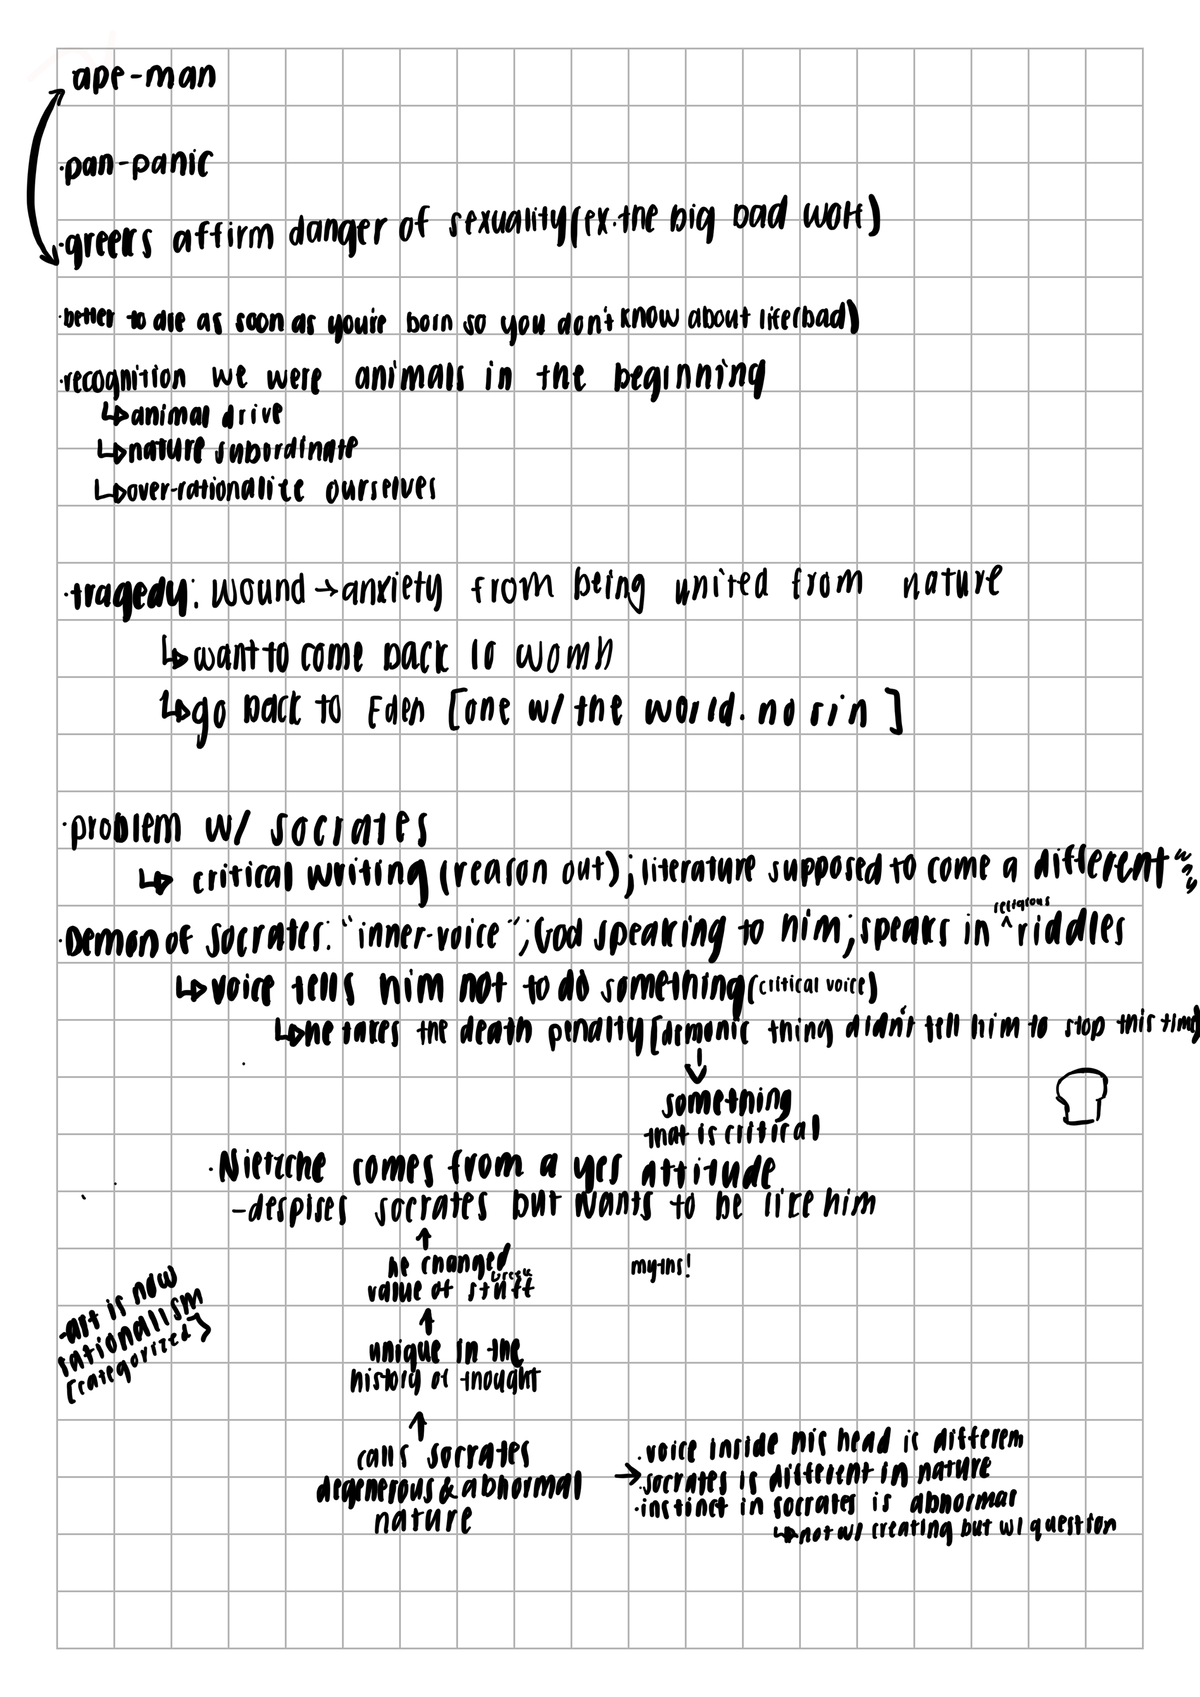 ape-man
·pan-panic
·greeks affirm danger of sexuality (ex. the big bad wolf)
·better to die as soon as you're born so you don't know about life (bad)
·recognition we were animals in the beginning
↳animal drive
↳nature subordinate
↳over-rationalize ourselves
·tragedy: wound → anxiety from being united from nature
↳want to come back to womb
↳go back to Eden [one w/ the world. no sin]
·problem w/ socrates
↳ critical writing (reason out); literature supposed to come a different
religious
·Demon of Socrates: "inner-voice"; God speaking to him; speaks in ^riddles
↳voice tells him not to do something (critical voice)
↳he takes the death penalty [demonic thing didn't tell him to stop this time]
↓
something
that is critical
·Nietzche comes from a yes attitude
-despises socrates but wants to be like him
↑
he changed
myths!
greek
value of stuff
↑
-art is now
rationalism
[categorized]
unique in the
history of thought
↑
calls socrates
degenerous & abnormal
nature
→
·voice inside his head is different
·socrates is different in nature
·instinct in socrates is abnormal
↳not w/ creating but w/ question